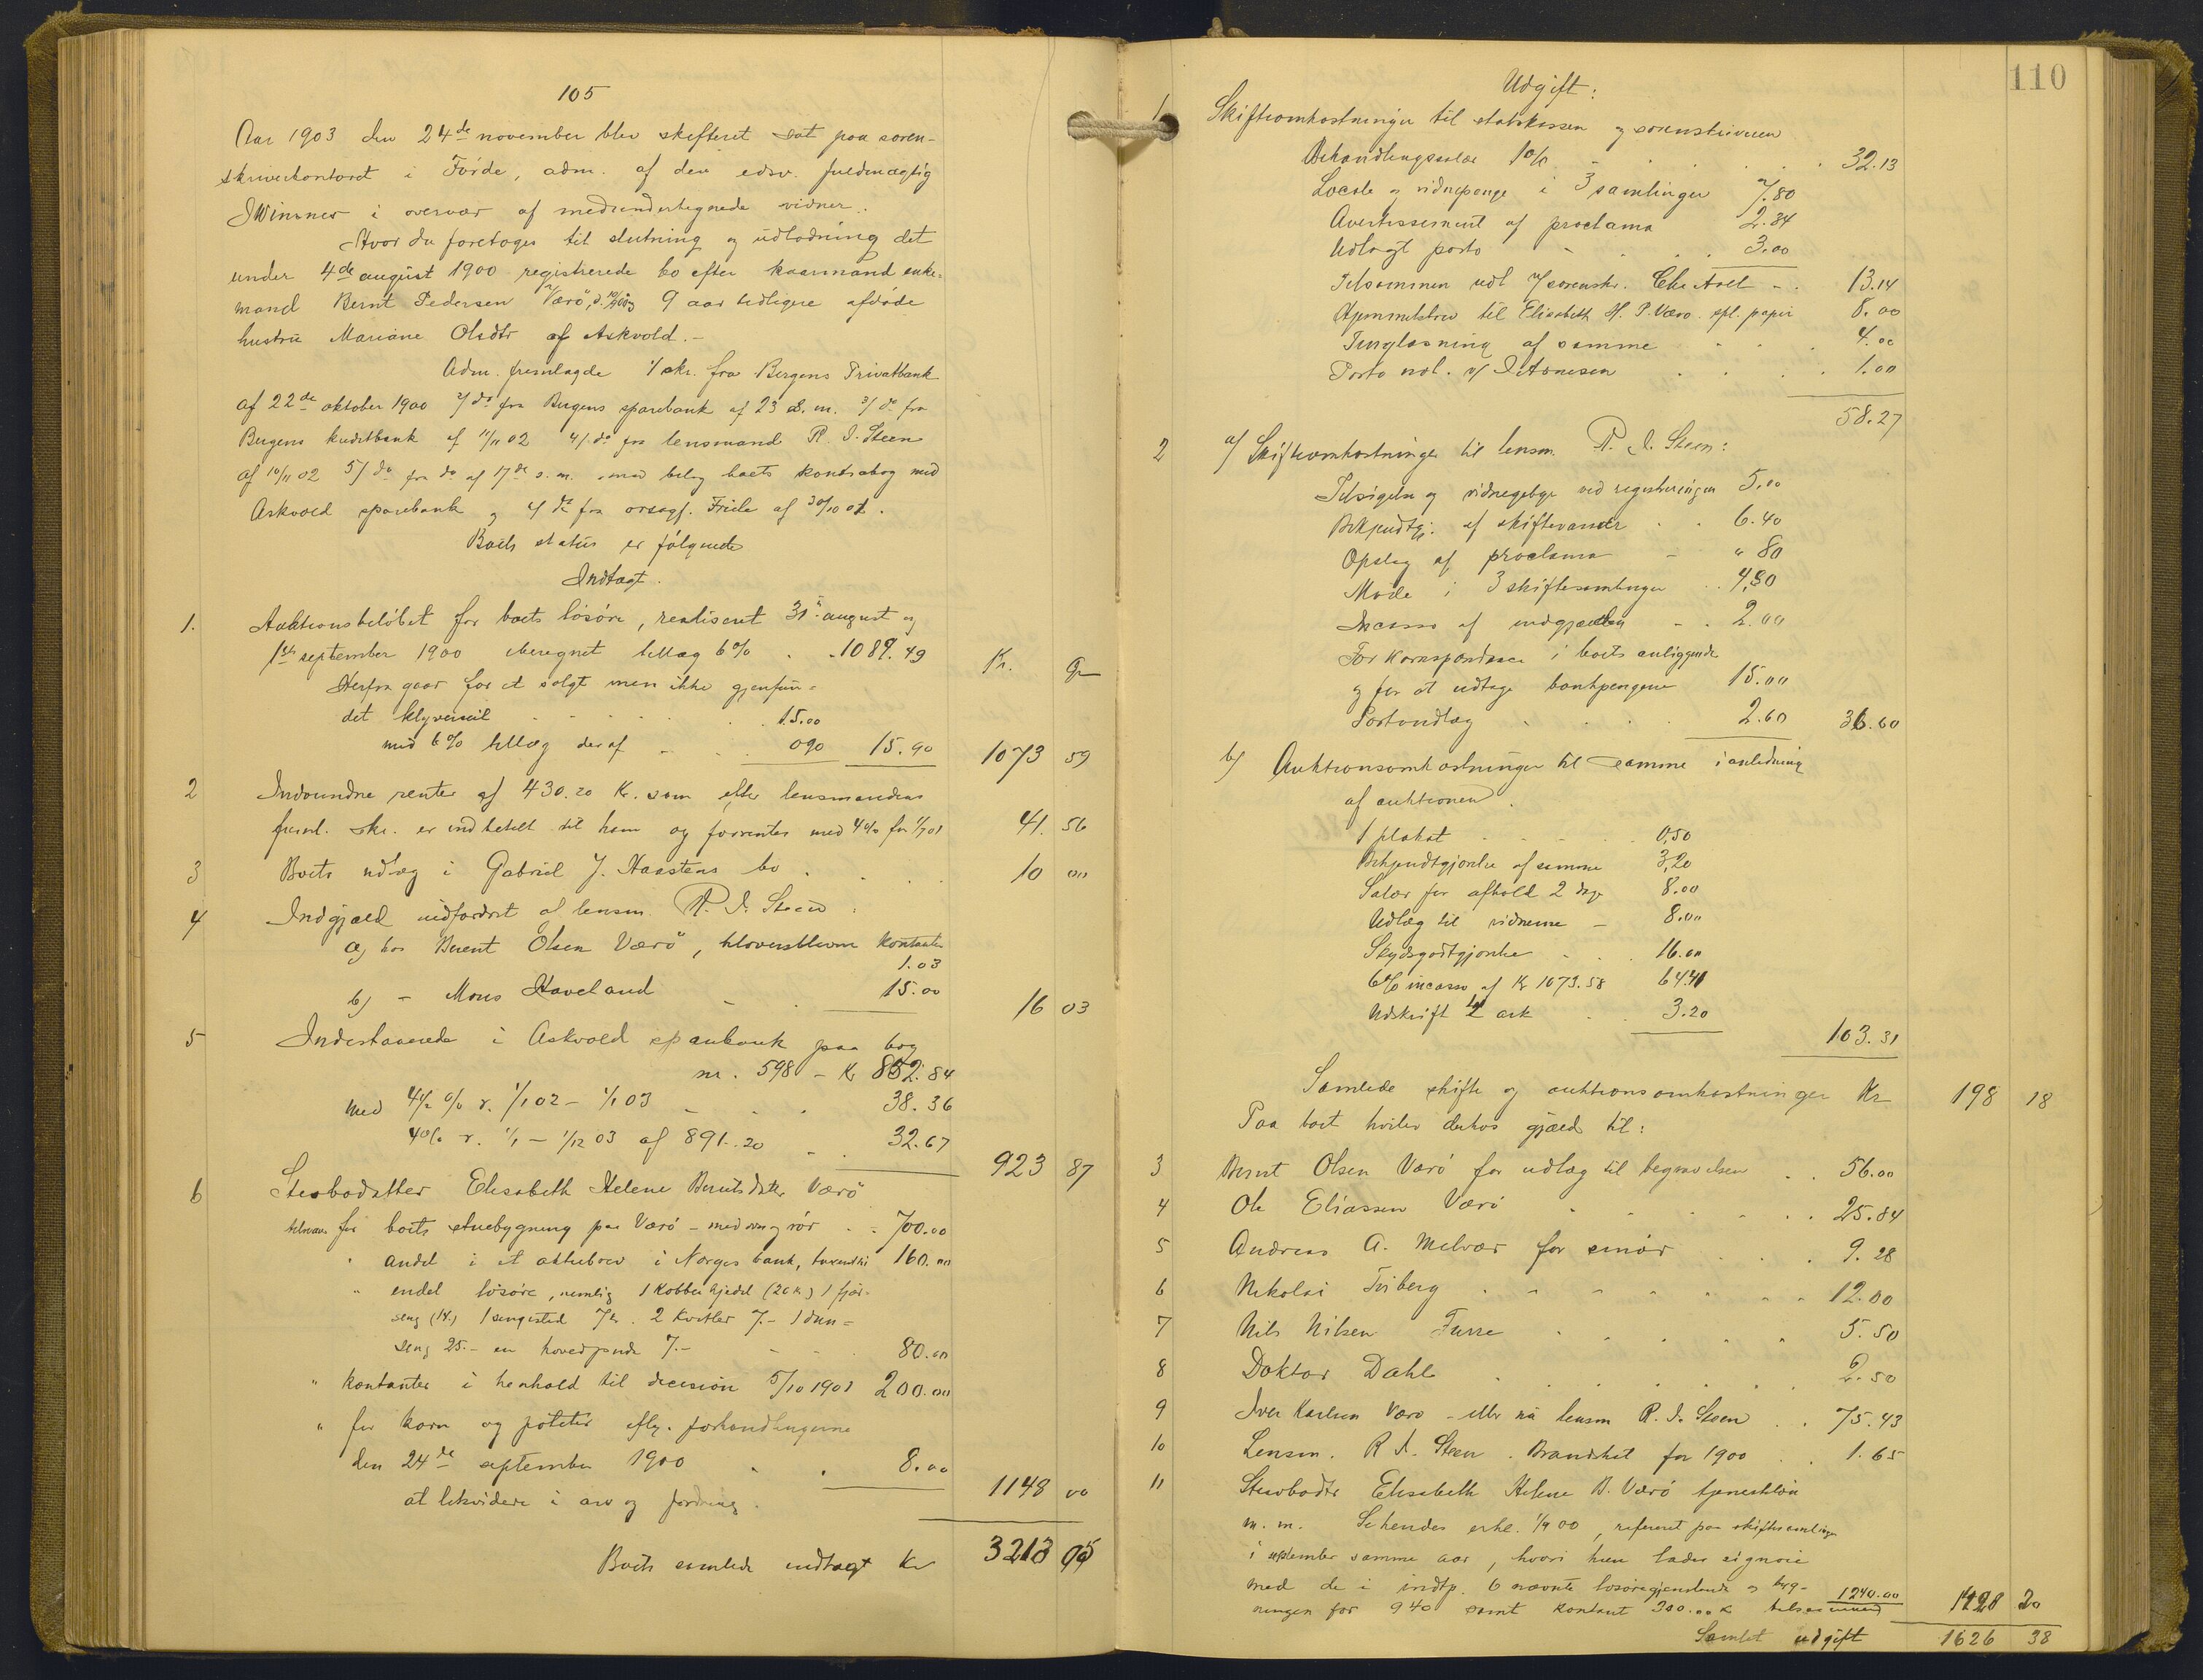 105
Aar 1903 den 24de november blev skifteret sat paa soren-
skriverkontoret i Førde, adm. af den edsv. fuldmægtig
JWinsnes i overvær af medundertegnede vidner.
Hvor da foretoges til slutning og udlodning det
under 4de august 1900 registrerede bo efter kaarmand enke-
mand Bernt Pedersen Værö, og 9 aar tidligere afdöde
hustru Mariane Olsdtr af Askvold.-
Adm. fremlagde 1/ skr. fra Bergens Privatbank
af 22de oktober 1900 2/ do fra Bergens sparebank af 23 s. m. 3/ do fra
Bergens kreditbank af 11/11 02 4/ do fra lensmand R. I. Steen
af 10/11 02 5/ do fra do af 17de s. m. med bilag boets kontrabog med
Askvold sparebank og do fra orsagf. Friele af 30/10 01.
Boets status er følgende
Indtægt.
1. Auktionsbeløbet for boets lösöre, realiseret 31te august og
1ste september 1900 iberegnet tillæg 6% . - 1089.49
Kr. Ø
Herfra gaar for et solgt men ikke gjenfun-
det klyverseil . . 15.00
med 6% tillæg deraf - 0 90 15.90 1073 59
2 Indvundne renter af 430.20 Kr. som efter lensmandens
freml. skr. er indbetalt til ham og forrentes med 4% fra 1/7 01 41. 56
3 Boets udlæg i Gabriel J. Haastens bo . . . 10 00
4 Indgjæld indfordret af lensm. R. I. Steen :
a) hos Berent Olsen Værö, kontanter
1.03
b) - Mons Haveland - . 15.00 16 03
5 Indestaaende i Askvold sparebank paa bog
nr. 598 - Kr 852.84
med 4½ % r. 1/1 02 - 1/1 03 - . . 38.36
4% r. 1/1 - 1/12 03 af 891.20 - . 32.67 923 87
6 Stesbodatter Elisabeth Helene Berntsdatter Værö
tilsvar. for boets stuebygning paa Værö - med ovn og rör . - 700.00
" andel i et aktiebrev i Norges bank, 160.00
" endel lösöre, nemlig 1 kobberkjedel (20 kr) 1 fjær-
seng (14.) 1 sengested 7 kr. 2 kvitler 7.- 1 dun-
seng 25.- en hovedpude 7.- - - . 80.00
" kontanter i henhold til decision 5/10 1901 200.00
" for korn og poteter efter forhandlingerne
den 24de september 1900 . . 8.00
at likvidere i arv og fordring. 1148 00
Boets samlede indtægt Kr 3213 05
110
Udgift:
1 Skifteomkostninger til statskassen og sorenskriveren
Behandlingssalær 1% - . . . . 32.13
Locale og vidnepenge i 3 samlinger 7.80
Avertissement af proclama 2.34
Udlagt porto - . . . 3.00
Tilsammen udl. af sorenskr. Chr Aall - . 13.14
Hjemmelsbrev til Elisabeth H. B. Værö spl. papir 8.00
Tinglæsning af samme - . . 4.00
Porto . . . . 1.00
58.27
2 a/ Skifteomkostninger til lensm. R. I. Steen:
Tilsigelse og vidnegebyr ved registreringen 5.00
Bekjendtgj. af skiftevarsler . . 6.40
Opslag af proclama - " 80
Møde i 3 skiftesamlinger . . 4,80
Incasso af indgjælden - . 2.00
For korrespondance i boets anliggende
og for at udtage bankpengene 15.00
Portoudlæg . . . 2.60 36.60
b) Auktionsomkostninger til samme i anledning
af auktionen.
1 plakat - - 0,50
Bekjendtgjørelse af samme 3,20
Salær for afhold 2 dage 8.00
Udlæg til vidnerne - 8.00
Skydsgodtgjørelse . . 16.00
6% incasso af Kr 1073.58 64.41
Udskrift ark . . 3.20
103.31
Samlede skifte og auktionsomkostninger Kr 198 18
Paa boet hviler derhos gjæld til:
3 Bernt Olsen Værö for udlæg til begravelsen . . 56.00
4 Ole Eliassen Værö . . . . . . 25.84
5 Andreas A. Melvær for smör . . . 9.28
6 Nikolai Friberg . - - - - - - 12.00
7 Nils Nilsen Furre . . . . 5.50
8 Doktor Dahl . . . . . . 2.50
9 Iver Karlsen Værö - eller nu lensm R. I. Steen . . 75.43
10 Lensm. R. I. Steen . Brandskat for 1900 . . 1.65
11 Stesbodtr Elisabeth Helene B. Værö tjenestelön
m. m. Se hendes erkl. 1/9 00, refereret paa skiftesamling
i september samme aar, hvori hun lader sig nöie
med de i indtp. 6 nævnte lösöregjenstande og byg-
ningen for 940 samt kontant 300.00 kr tilsammen 1240.00 1428 20
Samlet udgift 1626 38